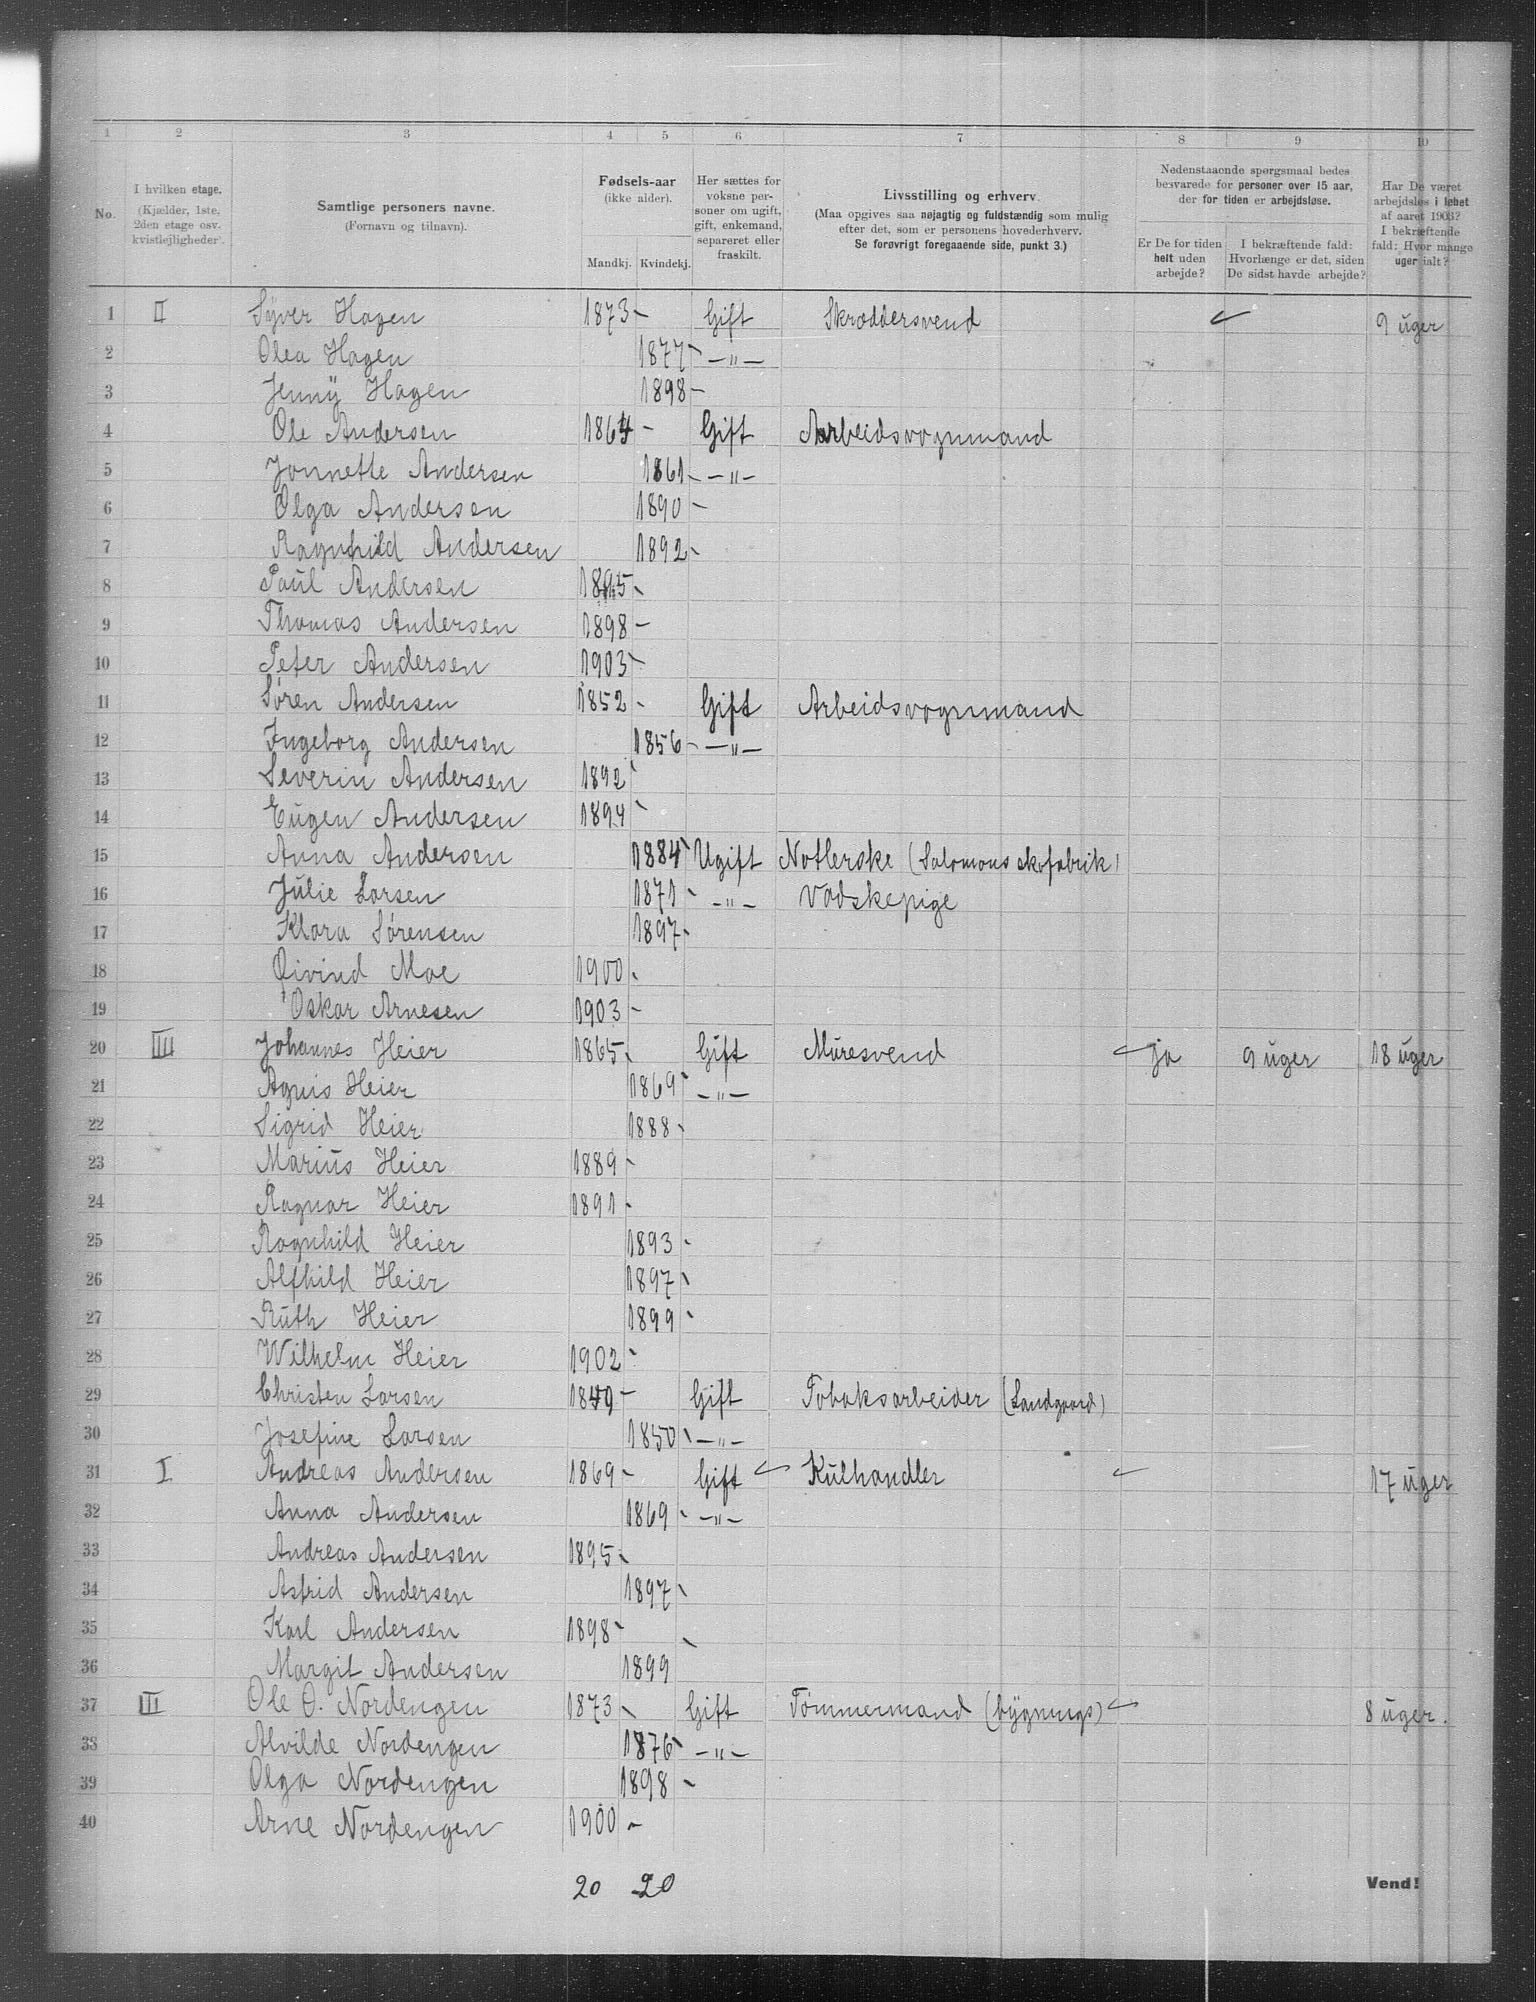 1 2 3 4 5 6 7 8 9 10
No.
I hvilken etage.
(Kjælder, 1ste, 2den etage osv. kvistlejligheder).
Samtlige personers navne.
(Fornavn og tilnavn).
Fødsels-aar
(ikke alder).
Mandkj. Kvindekj.
Her sættes for voksne personer om ugift, gift, enkemand, separeret eller fraskilt.
Livsstilling og erhverv
(Maa opgives saa nøjagtig og fuldstændig som mulig efter det, som er personens hovederhverv.
Se forøvrigt foregaaende side, punkt 3.)
Nedenstaaende spørgsmaal bedes besvarede for personer over 15 aar, der for tiden er arbejdsløse.
Er De for tiden helt uden arbejde?
I bekræftende fald: Hvorlænge er det, siden De sidst havde arbejde?
Har De været arbejdsløs i løbet af aaret 1903? I bekræftende fald: Hvor mange uger ialt?
1 II Syver Hagen 1873 - Gift Skræddersvend 9 uger
2 Olea Hagen 1877 - -"-
3 Jenny Hagen 1898 -
4 Ole Andersen 1864 - Gift Arbeidsvognmand
5 Jonnette Andersen 1861 - -"-
6 Olga Andersen 1890 -
7 Ragnhild Andersen 1892 -
8 Paul Andersen 1895 -
9 Thomas Andersen 1898 -
10 Peter Andersen 1903 -
11 Søren Andersen 1852 - Gift Arbeidsvognmand
12 Ingeborg Andersen 1856 - -"-
13 Severin Andersen 1892 -
14 Eugen Andersen 1894 -
15 Anna Andersen 1884 - Ugift Notlerske (Salomons skofabrik)
16 Julie Larsen 1871 - -"- Vadskepige
17 Klara Sørensen 1897 -
18 Øivind Moe 1900 -
19 Oskar Arnesen 1903 -
20 IIII Johannes Heier 1865 - Gift Muresvend ja 9 uger 18 uger
21 Agnis Heier 1869 - -"-
22 Sigrid Heier 1888 -
23 Marius Heier 1889 -
24 Ragnar Heier 1891 -
25 Ragnhild Heier 1893 -
26 Alfhild Heier 1897 -
27 Ruth Heier 1899 -
28 Wilhelm Heier 1902 -
29 Christen Larsen 1849 - Gift Tobaksarbeider (Landgaard)
30 Josefine Larsen 1850 - -"-
31 I Andreas Andersen 1869 - Gift Kulhandler 17 uger
32 Anna Andersen 1869 - -"-
33 Andreas Andersen 1895 -
34 Astrid Andersen 1897 -
35 Karl Andersen 1898 -
36 Margit Andersen 1899 -
37 III Ole O. Nordengen 1873 - Gift Tømmermand (bygnings) 8 uger.
38 Alvilde Nordengen 1876 - -"-
39 Olga Nordengen 1898 -
40 Arne Nordengen 1900 -
20 20
Vend!